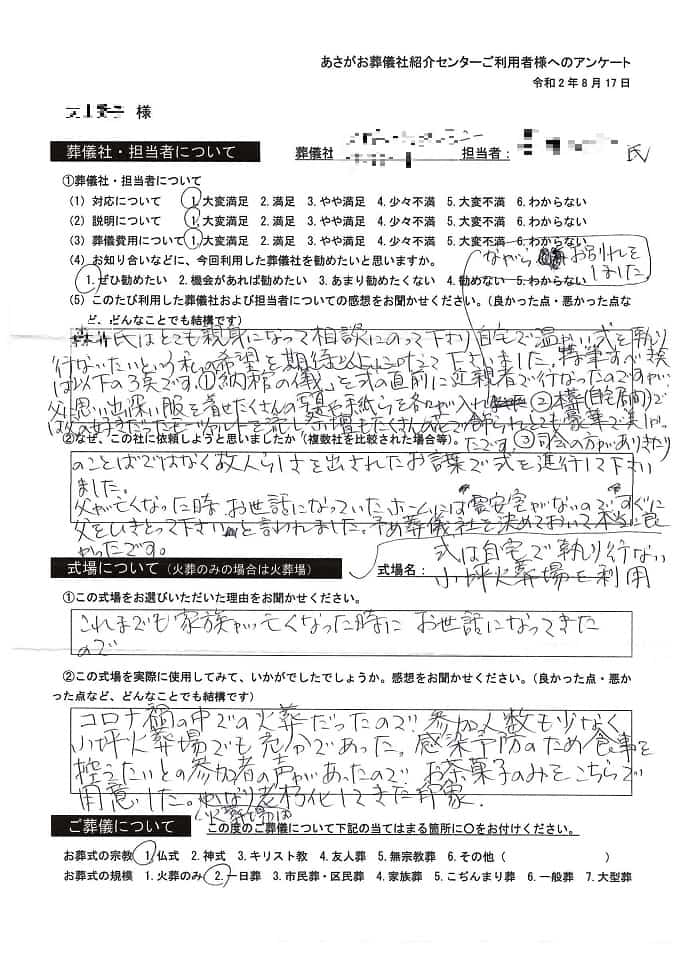 あさがお葬儀社紹介センターご利用者様へのアンケート
令和2年8月17日
様
葬儀社・担当者について 葬儀社 担当者: 氏
①葬儀社・担当者について
(1) 対応について 1.大変満足 2.満足 3.やや満足 4.少々不満 5.大変不満 6.わからない
(2) 説明について 1.大変満足 2.満足 3.やや満足 4.少々不満 5.大変不満 6.わからない
(3) 葬儀費用について 1.大変満足 2.満足 3.やや満足 4.少々不満 5.大変不満 6.わからない
(4) お知り合いなどに、今回利用した葬儀社を勧めたいと思いますか。
1.ぜひ勧めたい 2.機会があれば勧めたい 3.あまり勧めたくない 4.勧めない 5.わからない
(5) このたび利用した葬儀社および担当者についての感想をお聞かせください。(良かった点・悪かった点な
ど、どんなことでも結構です)
氏はとても親身になって相談にのって下さり自宅で温かい式を執り
行ないたいという私の希望を期待以上に叶えて下さいました。特筆すべき
は以下の3点です。①「納棺の儀」を式の直前に近親者で行なったのですが
父に思い出深い服を着せたくさんの写真や手紙らを各々が入れ
ながら お別れを
しました。
②(自宅居間)で
は父の好きだったモーツァルトを流し祭壇もたくさんの花で飾られとても豪華で美しかっ
たです。③司会の方がありきたり
②なぜ、この社に依頼しようと思いましたか(複数社を比較された場合等)。
のことばではなく故人らしさを出されたお言葉で式を進行して下さい
ました。
父が亡くなった時、お世話になっていたホームには霊安室がないのですぐに
父をひきとって下さいと言われました。予め葬儀社を決めておいて本当に良
かったです。
式場について(火葬のみの場合は火葬場) 式場名: 式は自宅で執り行ない
小坪火葬場を利用
①この式場をお選びいただいた理由をお聞かせください。
これまでも家族が亡くなった時に お世話になってきた
ので
②この式場を実際に使用してみて、いかがでしたでしょうか。感想をお聞かせください。(良かった点・悪か
った点など、どんなことでも結構です)
コロナ禍の中での火葬だったので 参加人数も少なく
小坪火葬場でも充分であった。感染予防のため食事を
控えたいとの参加者の声があったので お茶菓子のみをこちらで
用意した。火葬場は かなり老朽化してきた印象.
ご葬儀について この度のご葬儀について下記の当てはまる箇所に○をお付けください。
お葬式の宗教 1.仏式 2.神式 3.キリスト教 4.友人葬 5.無宗教葬 6.その他( )
お葬式の規模 1.火葬のみ 2.一日葬 3.市民葬・区民葬 4.家族葬 5.こぢんまり葬 6.一般葬 7.大型葬